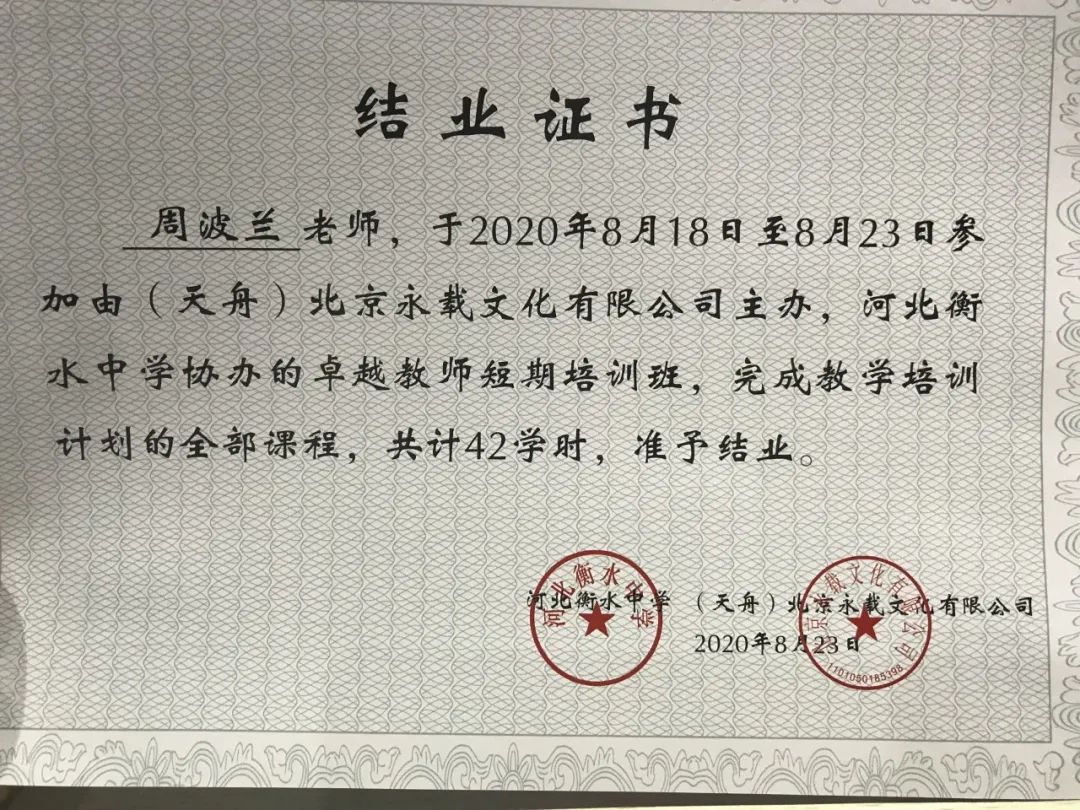 结业证书
周波兰老师，于2020年8月18日至8月23日参
加由（天舟）北京永载文化有限公司主办，河北衡
水中学协办的卓越教师短期培训班，完成教学培训
计划的全部课程，共计42学时，准予结业。
河北衡水中学 （天舟）北京永载文化有限公司
2020年8月23日
河北衡水中学
北京永载文化有限公司
1101050185398